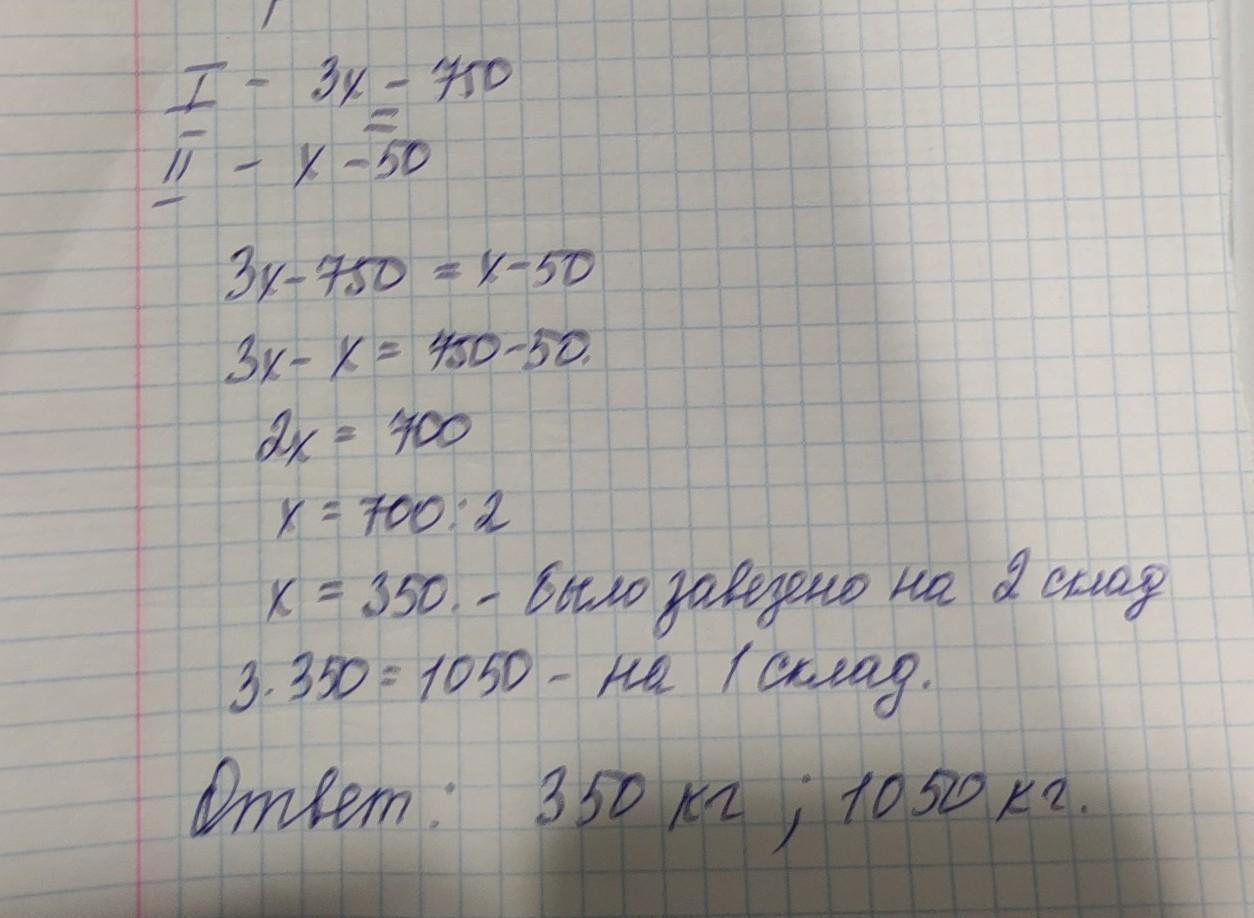 I - 3x - 750
=
II - x - 50
3x - 750 = x - 50
3x - x = 750 - 50.
2x = 700
x = 700 : 2
x = 350. - было завезено на 2 склад
3 · 350 = 1050 - на 1 склад.
Ответ: 350 кг ; 1050 кг.